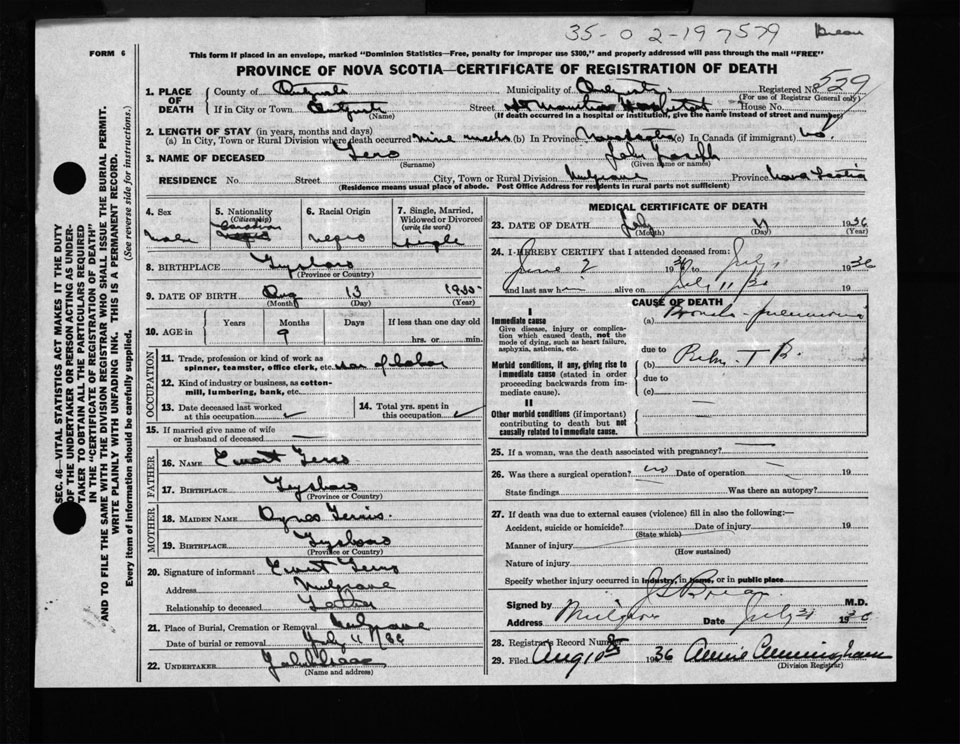 35-0 2-19 7579
FORM 6
This form if placed in an envelope, marked "Dominion Statistics—Free, penalty for improper use $300," and properly addressed will pass through the mail "FREE"
PROVINCE OF NOVA SCOTIA—CERTIFICATE OF REGISTRATION OF DEATH
529
1. PLACE OF DEATH
County of
Municipality of
Registered No.
(For use of Registrar General only)
If in City or Town
(Name)
Street
House No.
(If death occurred in a hospital or institution, give the name instead of street and number)
2. LENGTH OF STAY (in years, months and days)
(a) In City, Town or Rural Division where death occurred nine weeks (b) In Province (c) In Canada (if immigrant) no.
3. NAME OF DECEASED
(Surname)
John Joseph
(Given name or names)
RESIDENCE No. Street City, Town or Rural Division Mulgrave Province Nova Scotia
(Residence means usual place of abode. Post Office Address for residents in rural parts not sufficient)
4. Sex
male
5. Nationality
(Citizenship)
Canadian
negro
6. Racial Origin
negro
7. Single, Married, Widowed or Divorced
(write the word)
single
8. BIRTHPLACE
(Province or Country)
9. DATE OF BIRTH Aug 13
(Month) (Day) (Year)
10. AGE in
Years Months Days If less than one day old
9
hrs. or min.
OCCUPATION
11. Trade, profession or kind of work as spinner, teamster, office clerk, etc.
12. Kind of industry or business, as cotton-mill, lumbering, bank, etc.
13. Date deceased last worked at this occupation
14. Total yrs. spent in this occupation
15. If married give name of wife or husband of deceased
FATHER
16. NAME
17. BIRTHPLACE
(Province or Country)
MOTHER
18. MAIDEN NAME
19. BIRTHPLACE
(Province or Country)
20. Signature of informant
Address Mulgrave
Relationship to deceased Father
21. Place of Burial, Cremation or Removal Mulgrave
Date of burial or removal July 11/36
22. UNDERTAKER
(Name and address)
MEDICAL CERTIFICATE OF DEATH
23. DATE OF DEATH July 11 1936
(Month) (Day) (Year)
24. I HEREBY CERTIFY that I attended deceased from
June 2 1936 to July 1936
and last saw him alive on July 11 19
CAUSE OF DEATH
I
Immediate cause
Give disease, injury or complication which caused death, not the mode of dying, such as heart failure, asphyxia, asthenia, etc.
(a) Broncho-pneumonia
due to
Morbid conditions, if any, giving rise to immediate cause (stated in order proceeding backwards from immediate cause).
(b) T B.
due to
(c)
II
Other morbid conditions (if important) contributing to death but not causally related to immediate cause.
25. If a woman, was the death associated with pregnancy?
26. Was there a surgical operation? no Date of operation 19
State findings Was there an autopsy?
27. If death was due to external causes (violence) fill in also the following:—
Accident, suicide or homicide? Date of injury 19
(State which)
Manner of injury
(How sustained)
Nature of injury
Specify whether injury occurred in industry, in home, or in public place
Signed by M.D.
Address Mulgrave Date July 31 1936
28. Registrar's Record Number
29. Filed Aug 10th 1936 Annie Cunningham
(Division Registrar)
SEC. 46—VITAL STATISTICS ACT MAKES IT THE DUTY
OF THE UNDERTAKER OR PERSON ACTING AS UNDERTAKER TO OBTAIN ALL THE PARTICULARS REQUIRED
IN THE "CERTIFICATE OF REGISTRATION OF DEATH"
"AND TO FILE THE SAME WITH THE DIVISION REGISTRAR WHO SHALL ISSUE THE BURIAL PERMIT.
WRITE PLAINLY WITH UNFADING INK. THIS IS A PERMANENT RECORD.
Every item of information should be carefully supplied. (See reverse side for instructions.)